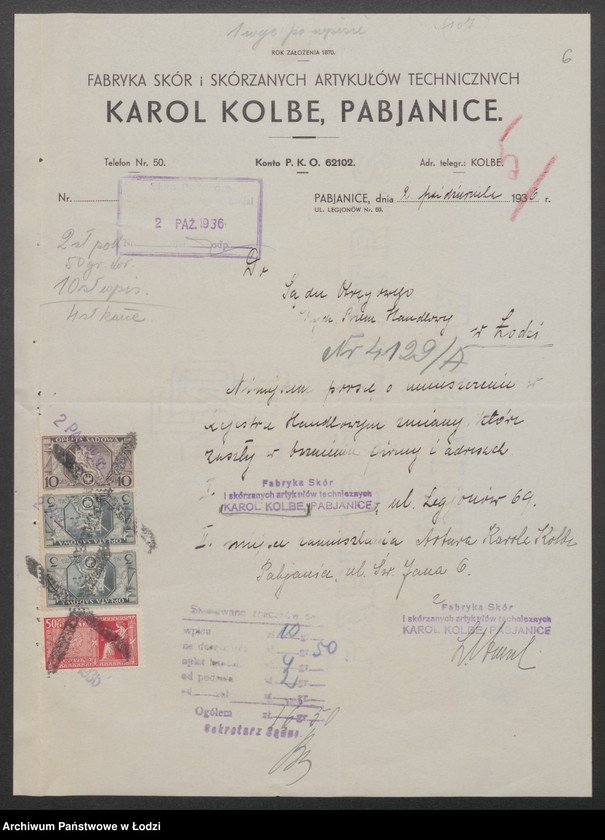 1 wyc po wpisie
6
ROK ZAŁOŻENIA 1870.
FABRYKA SKÓR i SKÓRZANYCH ARTYKUŁÓW TECHNICZNYCH
KAROL KOLBE, PABJANICE.
Telefon Nr. 50. Konto P. K. O. 62102. Adr. telegr.: KOLBE.
5/
Nr. PABJANICE, dnia 2 października 1936 r.
UL. LEGJONÓW Nr. 69.
2 PAŹ. 1936
2 zł pod
50 gr. dor.
10 zł wpis.
4 zł kanc
Do
Sądu Okręgowego
Handlowy
w Łodzi
Nr 4129/A
Niniejszem proszę o umieszczenie w
rejestrze Handlowym zmiany, które
zaszły w brzmieniu firmy i adresach
I. Fabryka Skór
i skórzanych artykułów technicznych
KAROL KOLBE, PABJANICE, ul. Legjonów 69.
II. miejsce zamieszkania Artura Karola Kolbe
Pabjanice, ul. Św. Jana 6.
Fabryka Skór
i skórzanych artykułów technicznych
KAROL KOLBE, PABJANICE
OPŁATA SĄDOWA
10 10
OPŁATA SĄDOWA
5 5
OPŁATA SĄDOWA
5 5
50
2 PAŹ
wpisu zł 10 gr.
na 50
zł 4 gr.
od podania zł 2 gr.
od zał. zł gr.
Ogółem zł. 16 gr. 50
Sekretarz Sądu
Archiwum Państwowe w Łodzi